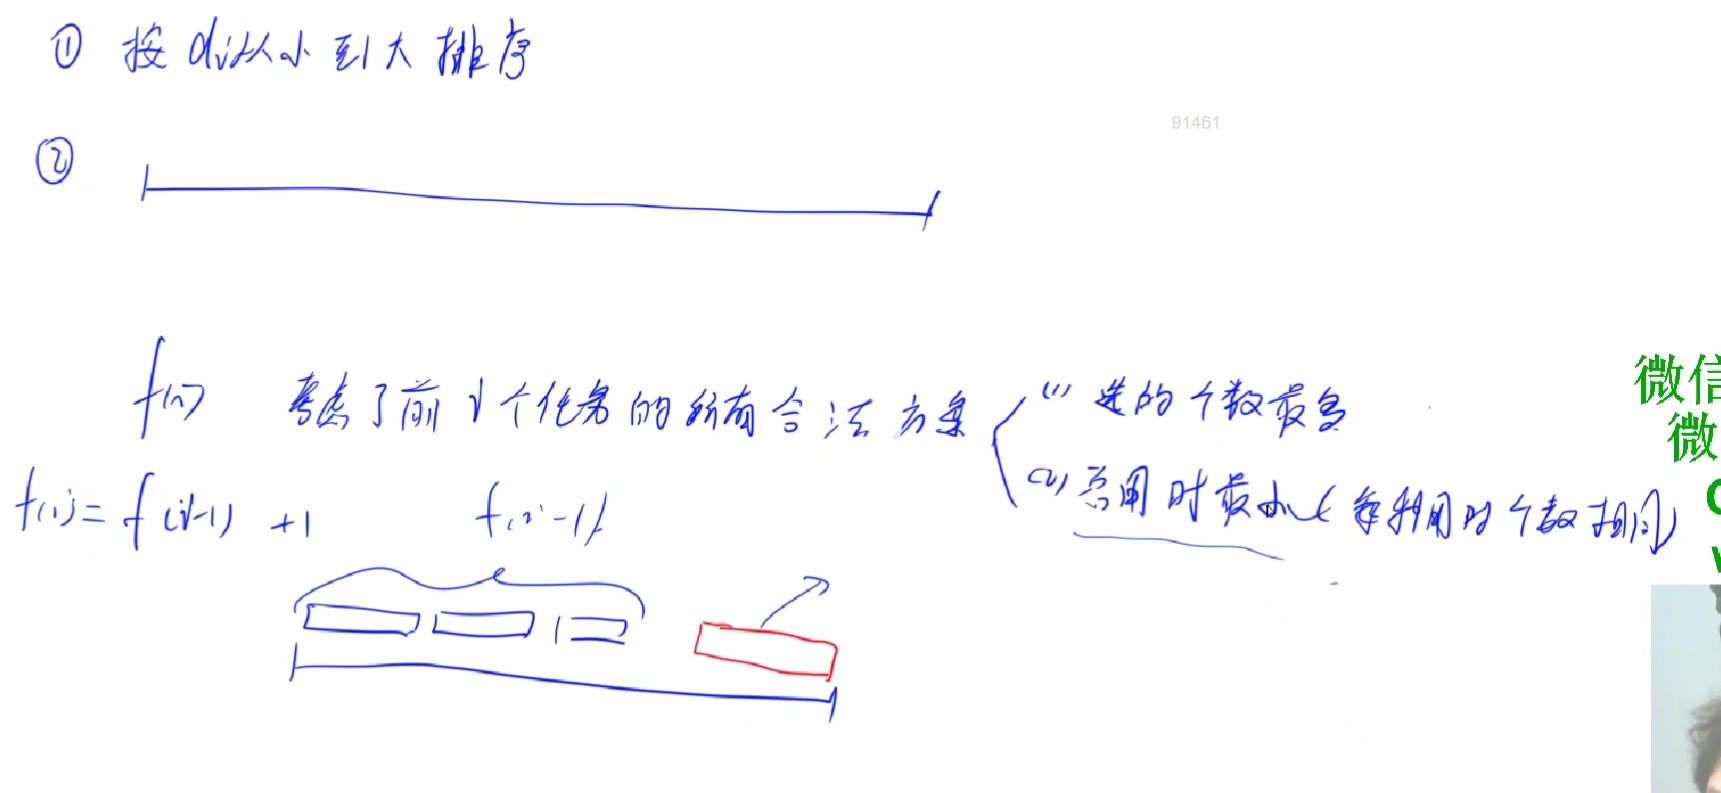 ① 按 di 从小到大排序
91461
②
f(i) 考虑了前 i 个任务的所有合法方案
(1) 选的个数最多
(2) 总用时最小 ( 每种用时个数相同 )
f(i) = f(i-1) +1 f(i-1)
微信
微